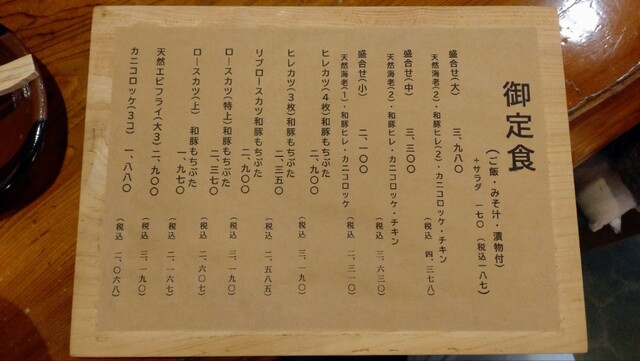 御定食
(ご飯・みそ汁・漬物付)
+サラダ 一七〇 (税込一八七)
盛合せ(大) 三、九八〇
天然海老(2)・和豚ヒレ(2)・カニコロッケ・チキン
(税込 四、三七八)
盛合せ(中) 三、三〇〇
天然海老(2)・和豚ヒレ・カニコロッケ・チキン
(税込 三、六三〇)
盛合せ(小) 二、一〇〇
天然海老(1)・和豚ヒレ・カニコロッケ
(税込 二、三一〇)
ヒレカツ(4枚)和豚もちぶた
二、九〇〇
(税込 三、一九〇)
ヒレカツ(3枚)和豚もちぶた
二、三五〇
(税込 二、五八五)
リブロースカツ和豚もちぶた
二、九〇〇
(税込 三、一九〇)
ロースカツ(特上)和豚もちぶた
二、三七〇
(税込 二、六〇七)
ロースカツ(上) 和豚もちぶた
一、九七〇
(税込 二、一六七)
天然エビフライ(大3)二、九〇〇
(税込 三、一九〇)
カニコロッケ(3コ) 一、八八〇
(税込 二、〇六八)